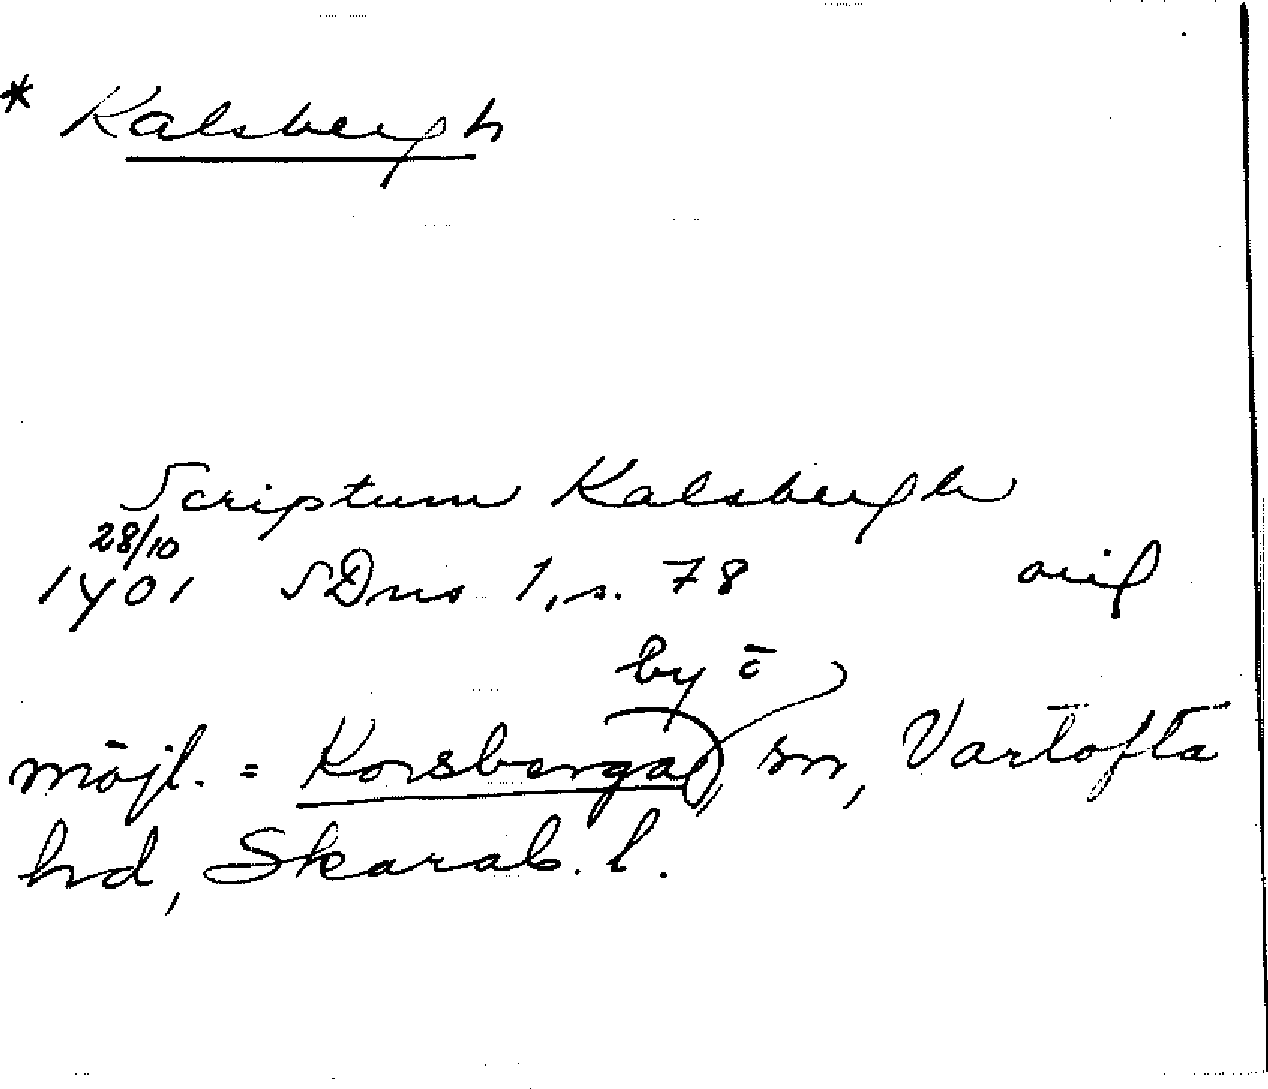 * Kalsbergh
Scriptum Kalsbergh
28/10
1401 SDns 1, s. 78 orig
by i
möjl. = Korsberga sn, Vartofta
hd, Skarab. l.